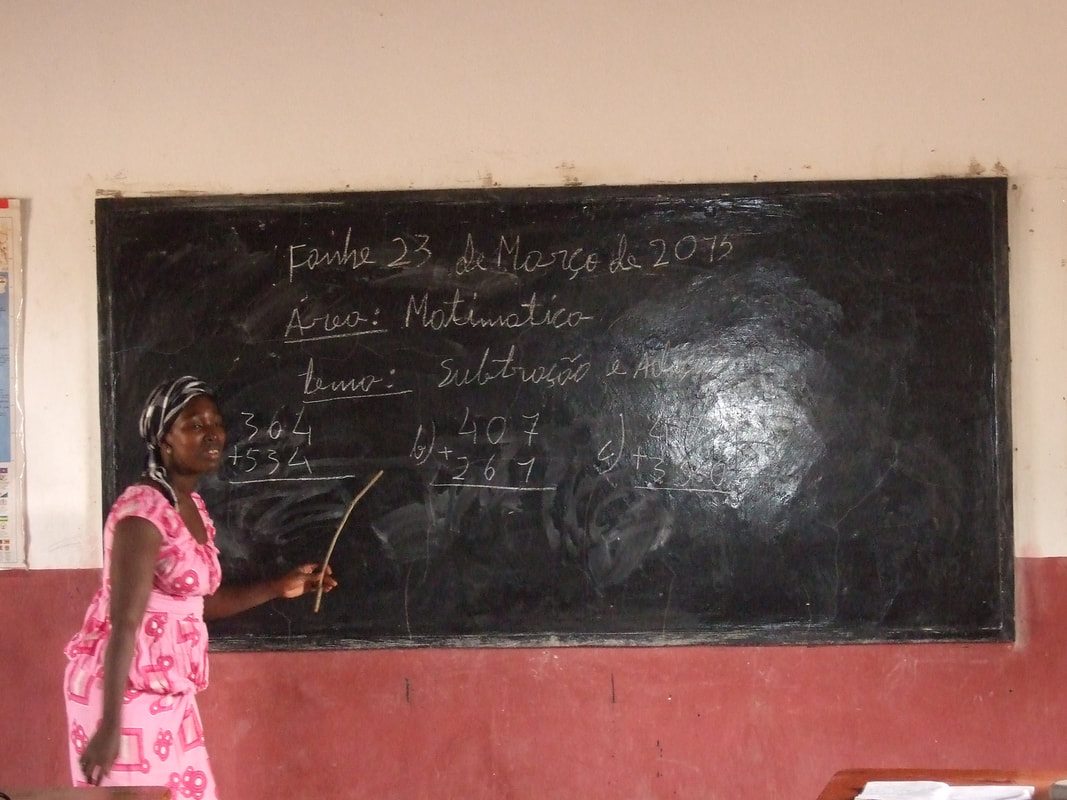 Fanhe 23 de Março de 2015
Área: Matimatica
tema: Subtração e
364 b) 407 c)
+534 + 267